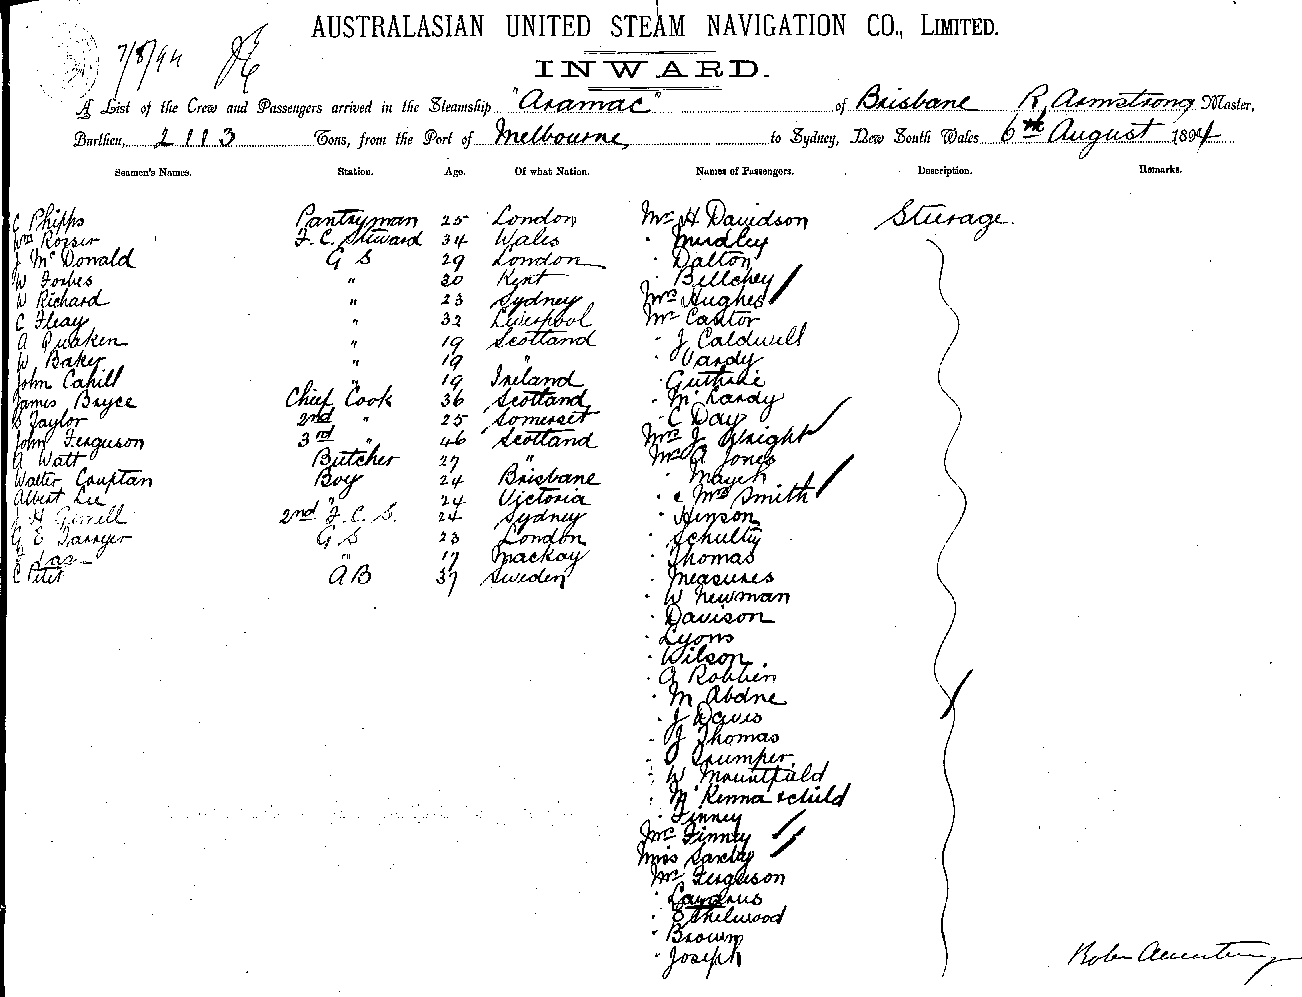 AUSTRALASIAN UNITED STEAM NAVIGATION CO., LIMITED.
7/8/94
INWARD.
A List of the Crew and Passengers arrived in the Steamship "Aramac" of Brisbane R. Armstrong Master,
Burthen, 2113 Tons, from the Port of Melbourne, to Sydney, New South Wales 6th August 1894
Seamen's Names. Station. Age. Of what Nation. Names of Passengers. Description. Remarks.
C Phipps Pantryman 25 London Mr H Davidson Steerage.
Wm Rosser F. C. Steward 34 Wales " Mudley
J McDonald G S 29 London " Dalton
W Forbes " 30 Kent " Billchey
W Richard " 23 Sydney Mrs Hughes
C Fleay " 32 Liverpool Mr Cantor
A " 19 Scotland " J Caldwell
W Baker " 19 " " Vardy
John Cahill " 19 Ireland " Guthrie
James Bryce Chief Cook 36 Scotland " McHardy
S Taylor 2nd " 25 Somerset " C Day
John Ferguson 3rd " 46 Scotland Mrs J Wright
A Watt Butcher 27 " Mr A Jones
Walter Boy 24 Brisbane " Maych
Albert Lee " 24 Victoria " Mrs Smith
J H 2nd F. C. S. 24 Sydney " Hinson
G E G S 23 London " Schulty
" 17 Mackay " Thomas
C Peter A B 37 Sweden " Measures
" W Newman
" Davison
" Lyons
" Wilson
" A Robbin
" M Abdne
" J Davis
" J Thomas
" Trumper
" W Mountfield
" McKenna & child
" Finney
Mrs Finney
Miss Saxby
Mr Ferguson
" Landrus
" Ethelwood
" Brown
" Joseph